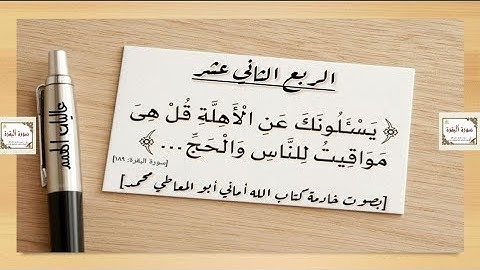 الربع الثاني عشر
﴿ يَسْـَٔلُونَكَ عَنِ الْأَهِلَّةِ قُلْ هِىَ
مَوَاقِيتُ لِلنَّاسِ وَالْحَجِّ ... ﴾
[سورة البقرة: ١٨٩]
[بصوت خادمة كتاب الله أماني أبو المعاطي محمد]
عاليات الهمم
سورة البقرة
سورة البقرة